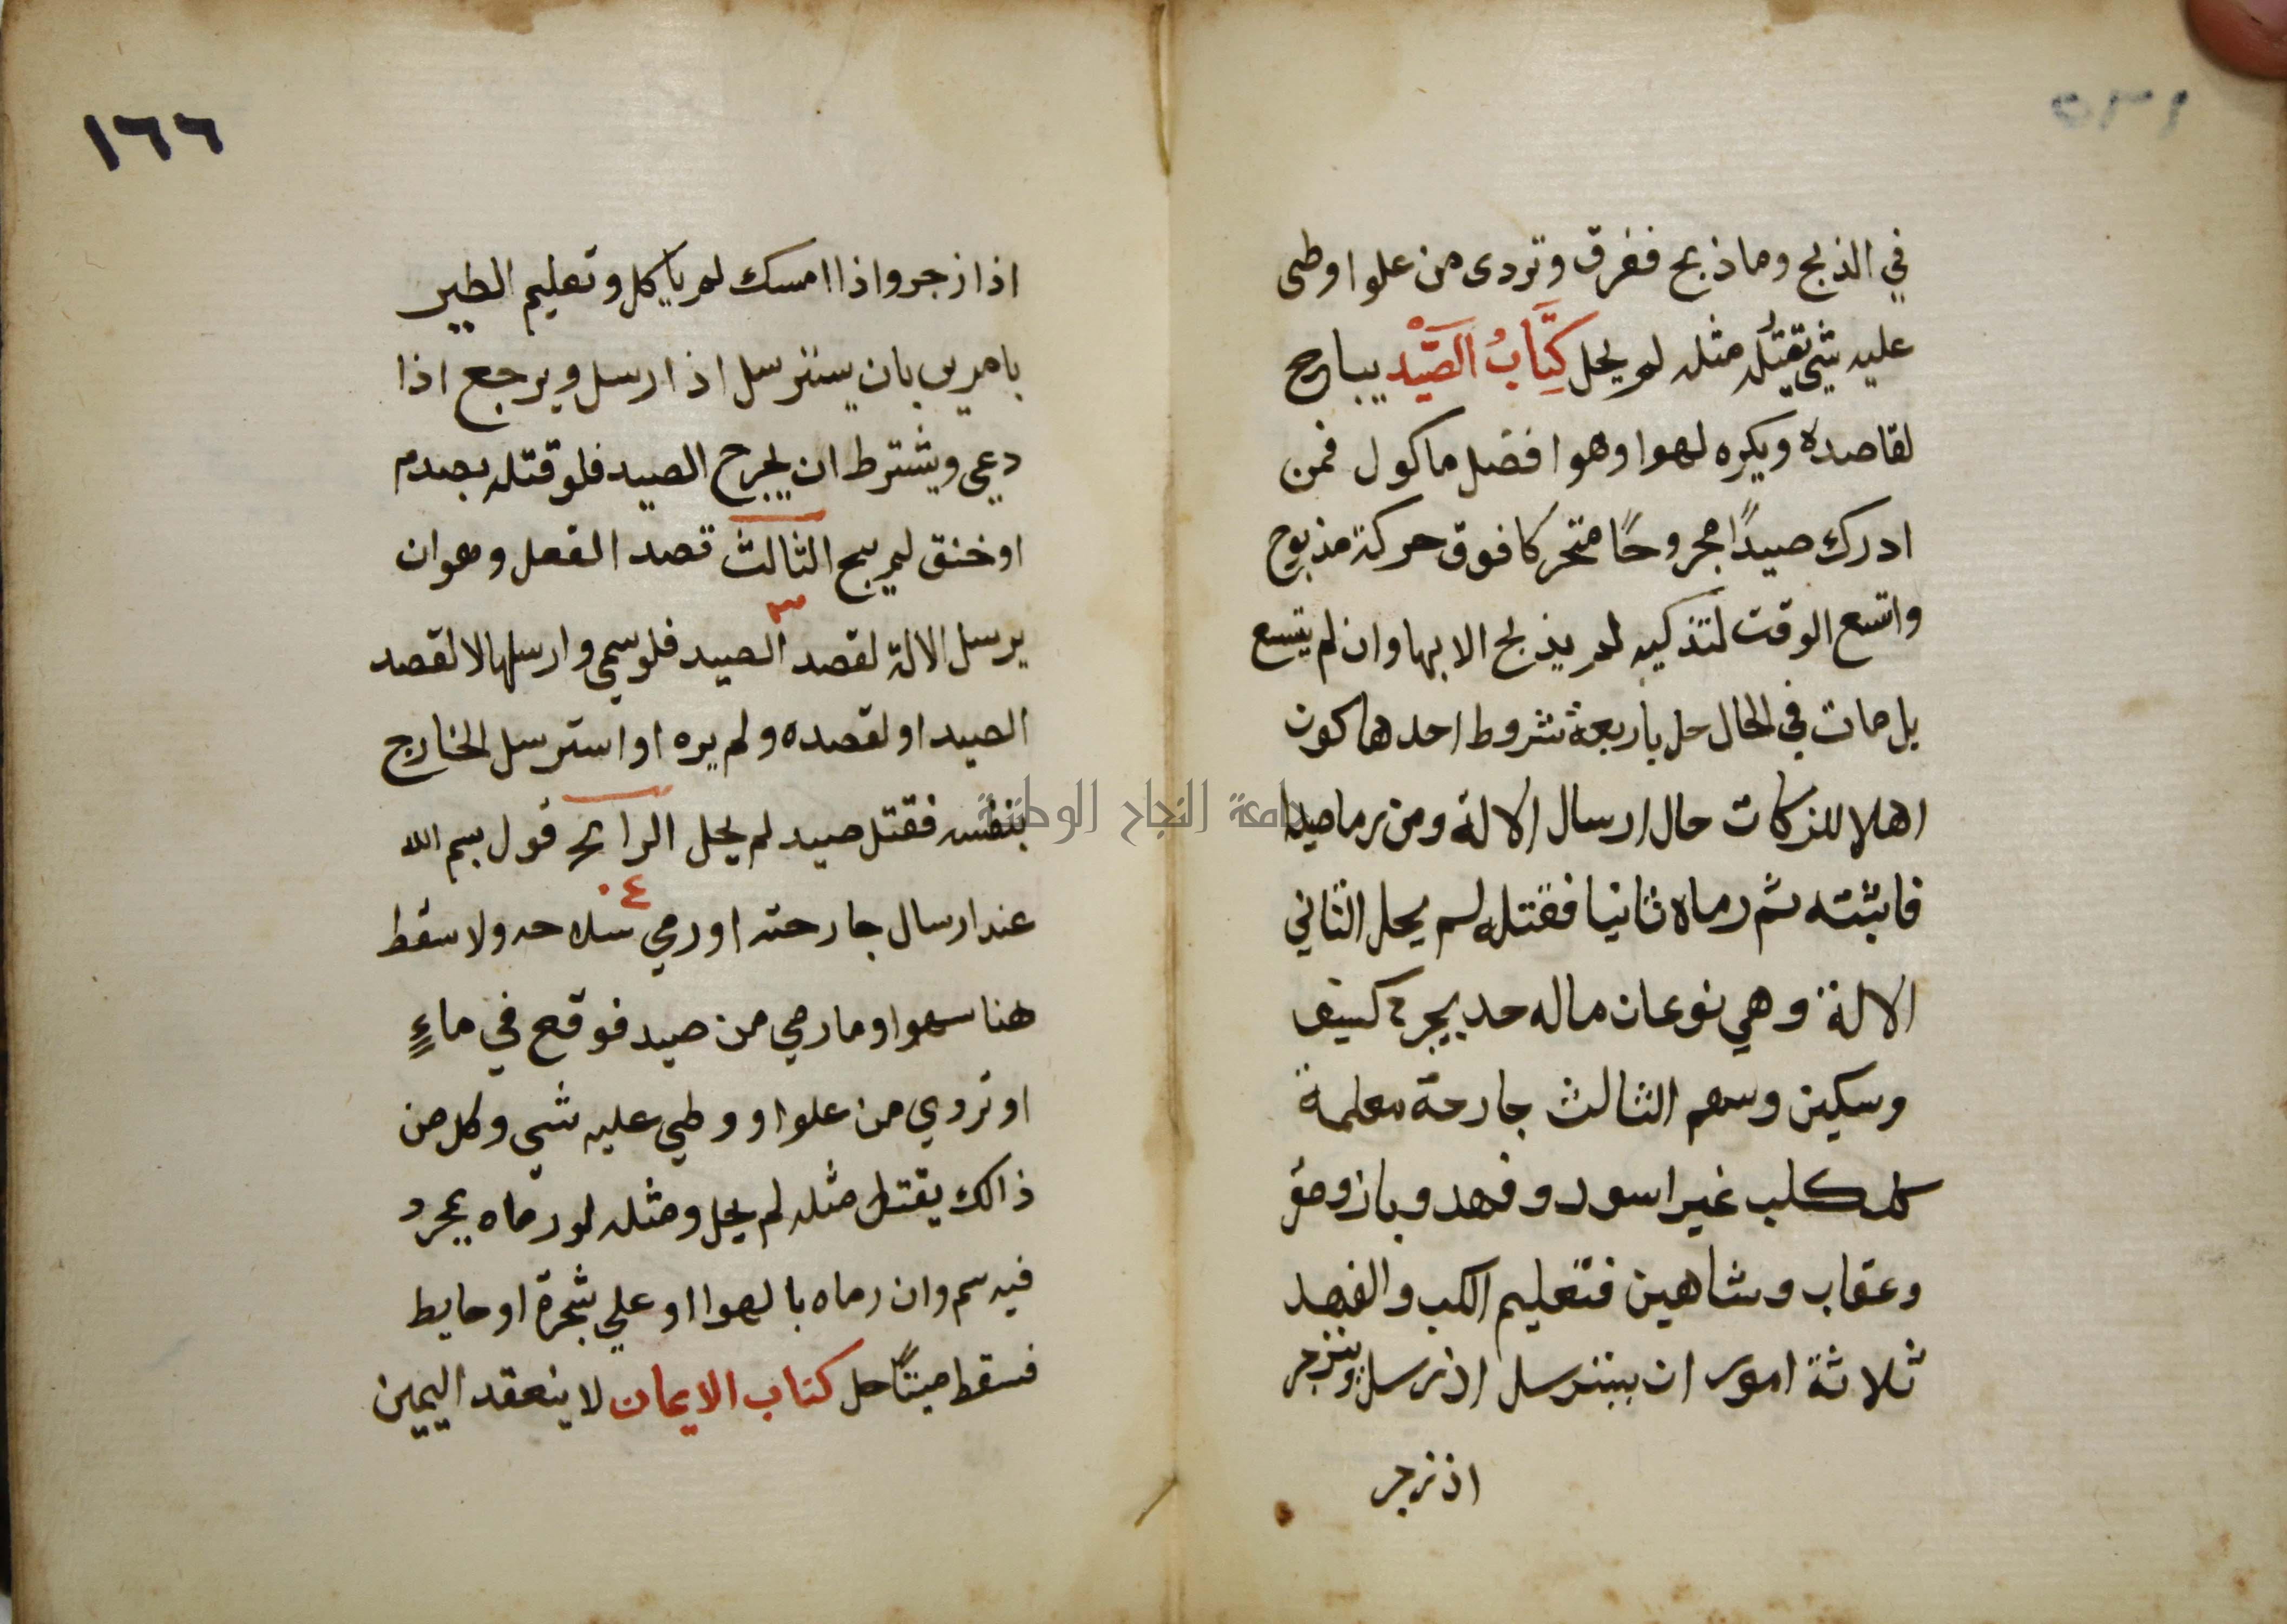 في الذبح وما ذبح فغرق وتردى من علو او طى
عليه شي يقتله مثله لم يحل كِتَابُ الصَّيْد يباح
لقاصده ويكره لهوا وهو افضل ماكول فمن
ادرك صيدًا مجروحًا متحركا فوق حركة مذبوح
واتسع الوقت لتذكيه لم يذبح الا بها وان لم يتسع
بل مات في الحال حل باربعة شروط احدها كون
اهلا للزكات حال ارسال الالة ومن رما صيدا
فاثبته ثم رماه ثانيا فقتله لم يحل الثاني
الالة وهي نوعان ماله حد يجرح كسيف
وسكين وسهم الثالث جارحة معلمة
كلب غير اسود وفهد وباز وصقر
وعقاب وشاهين فتعليم الكب والفهد
ثلاثة امور ان يسترسل اذ ارسل وينزجر
اذ زجر
١٦٦
اذا زجر واذا امسك لم ياكل وتعليم الطير
بامرين بان يسترسل اذا ارسل ويرجع اذا
دعي ويشترط ان يجرح الصيد فلو قتله بصدم
او خنق لم يبح الثالث قصد الفعل وهو ان
٣
يرسل الالة لقصد الصيد فلو سمى وارسلها لا لقصد
الصيد او لقصده ولم يره او استرسل الخارج
بنفسه فقتل صيد لم يحل الرابع قول بسم الله
٤
عند ارسال جارحته او رمي سلاحه ولا سقط
هنا سهوا وما رمي من صيد فوقع في ماءٍ
او تردي من علو او وطي عليه شي وكل من
ذالك يقتل مثله لم يحل ومثله لو رماه بمحرد
فيه سم وان رماه بالهوا او علي شجرة او حايط
فسقط ميتًا حل كتاب الايمان لا ينعقد اليمين
جامعة النجاح الوطنية